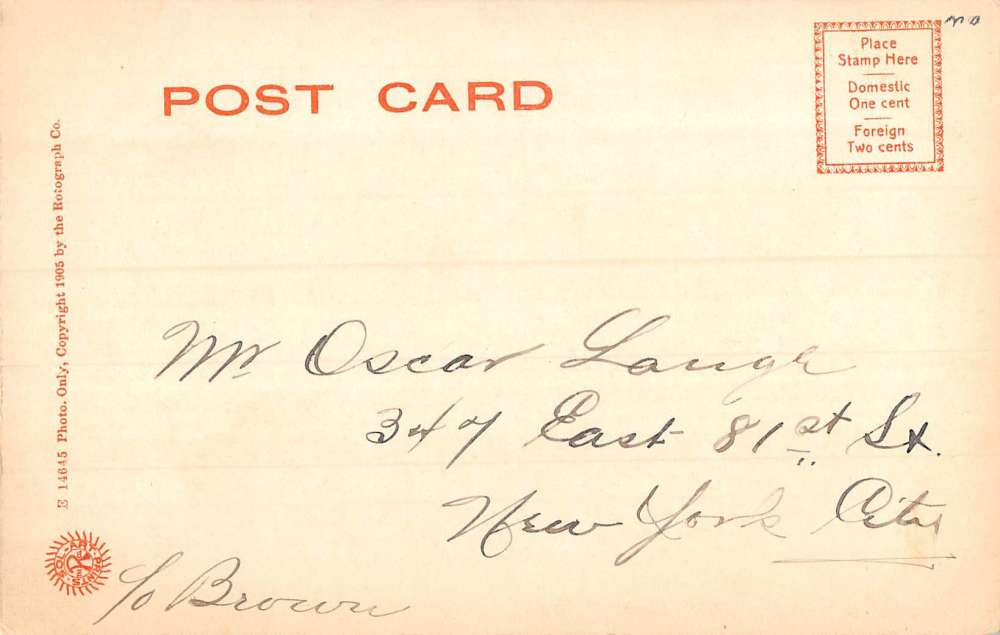 POST CARD
Place
Stamp Here
Domestic
One cent
Foreign
Two cents
E 14645 Photo. Only, Copyright 1905 by the Rotograph Co.
Mr Oscar Lange
347 East 81st St.
New York City
SOL-ART PRINTS
c/o Brown